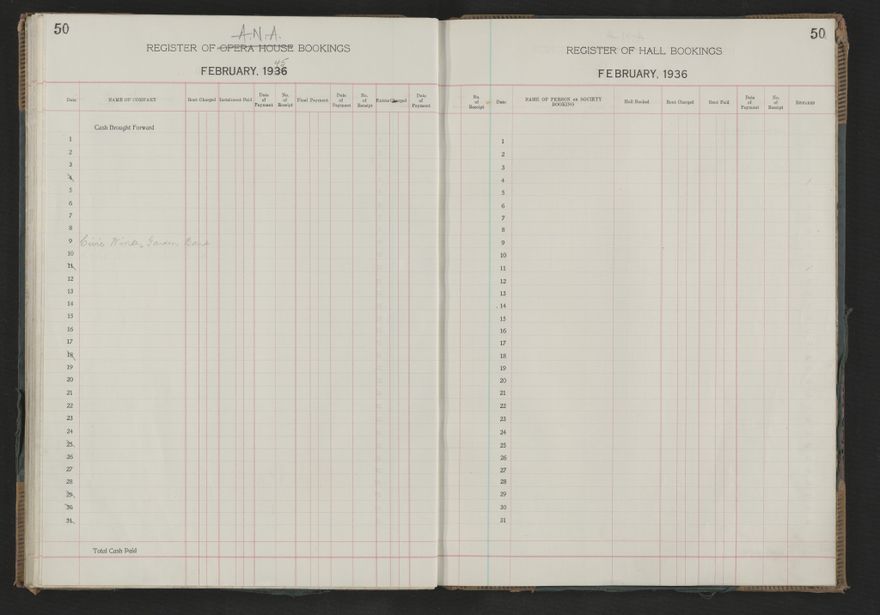 50
A.N.A.
REGISTER OF OPERA HOUSE BOOKINGS
45
FEBRUARY, 1936
Date NAME OF COMPANY Rent Charged Instalment Paid Date of Payment No. of Receipt Final Payment Date of Payment No. of Receipt Extras Charged Date of Payment
Cash Brought Forward
1
2
3
4
5
6
7
8
9 Civic Garden Band
10
11
12
13
14
15
16
17
18
19
20
21
22
23
24
25
26
27
28
29
30
31
Total Cash Paid
50
REGISTER OF HALL BOOKINGS
FEBRUARY, 1936
No. of Receipt Date NAME OF PERSON OR SOCIETY BOOKING Hall Booked Rent Charged Rent Paid Date of Payment No. of Receipt REMARKS
1
2
3
4
5
6
7
8
9
10
11
12
13
14
15
16
17
18
19
20
21
22
23
24
25
26
27
28
29
30
31